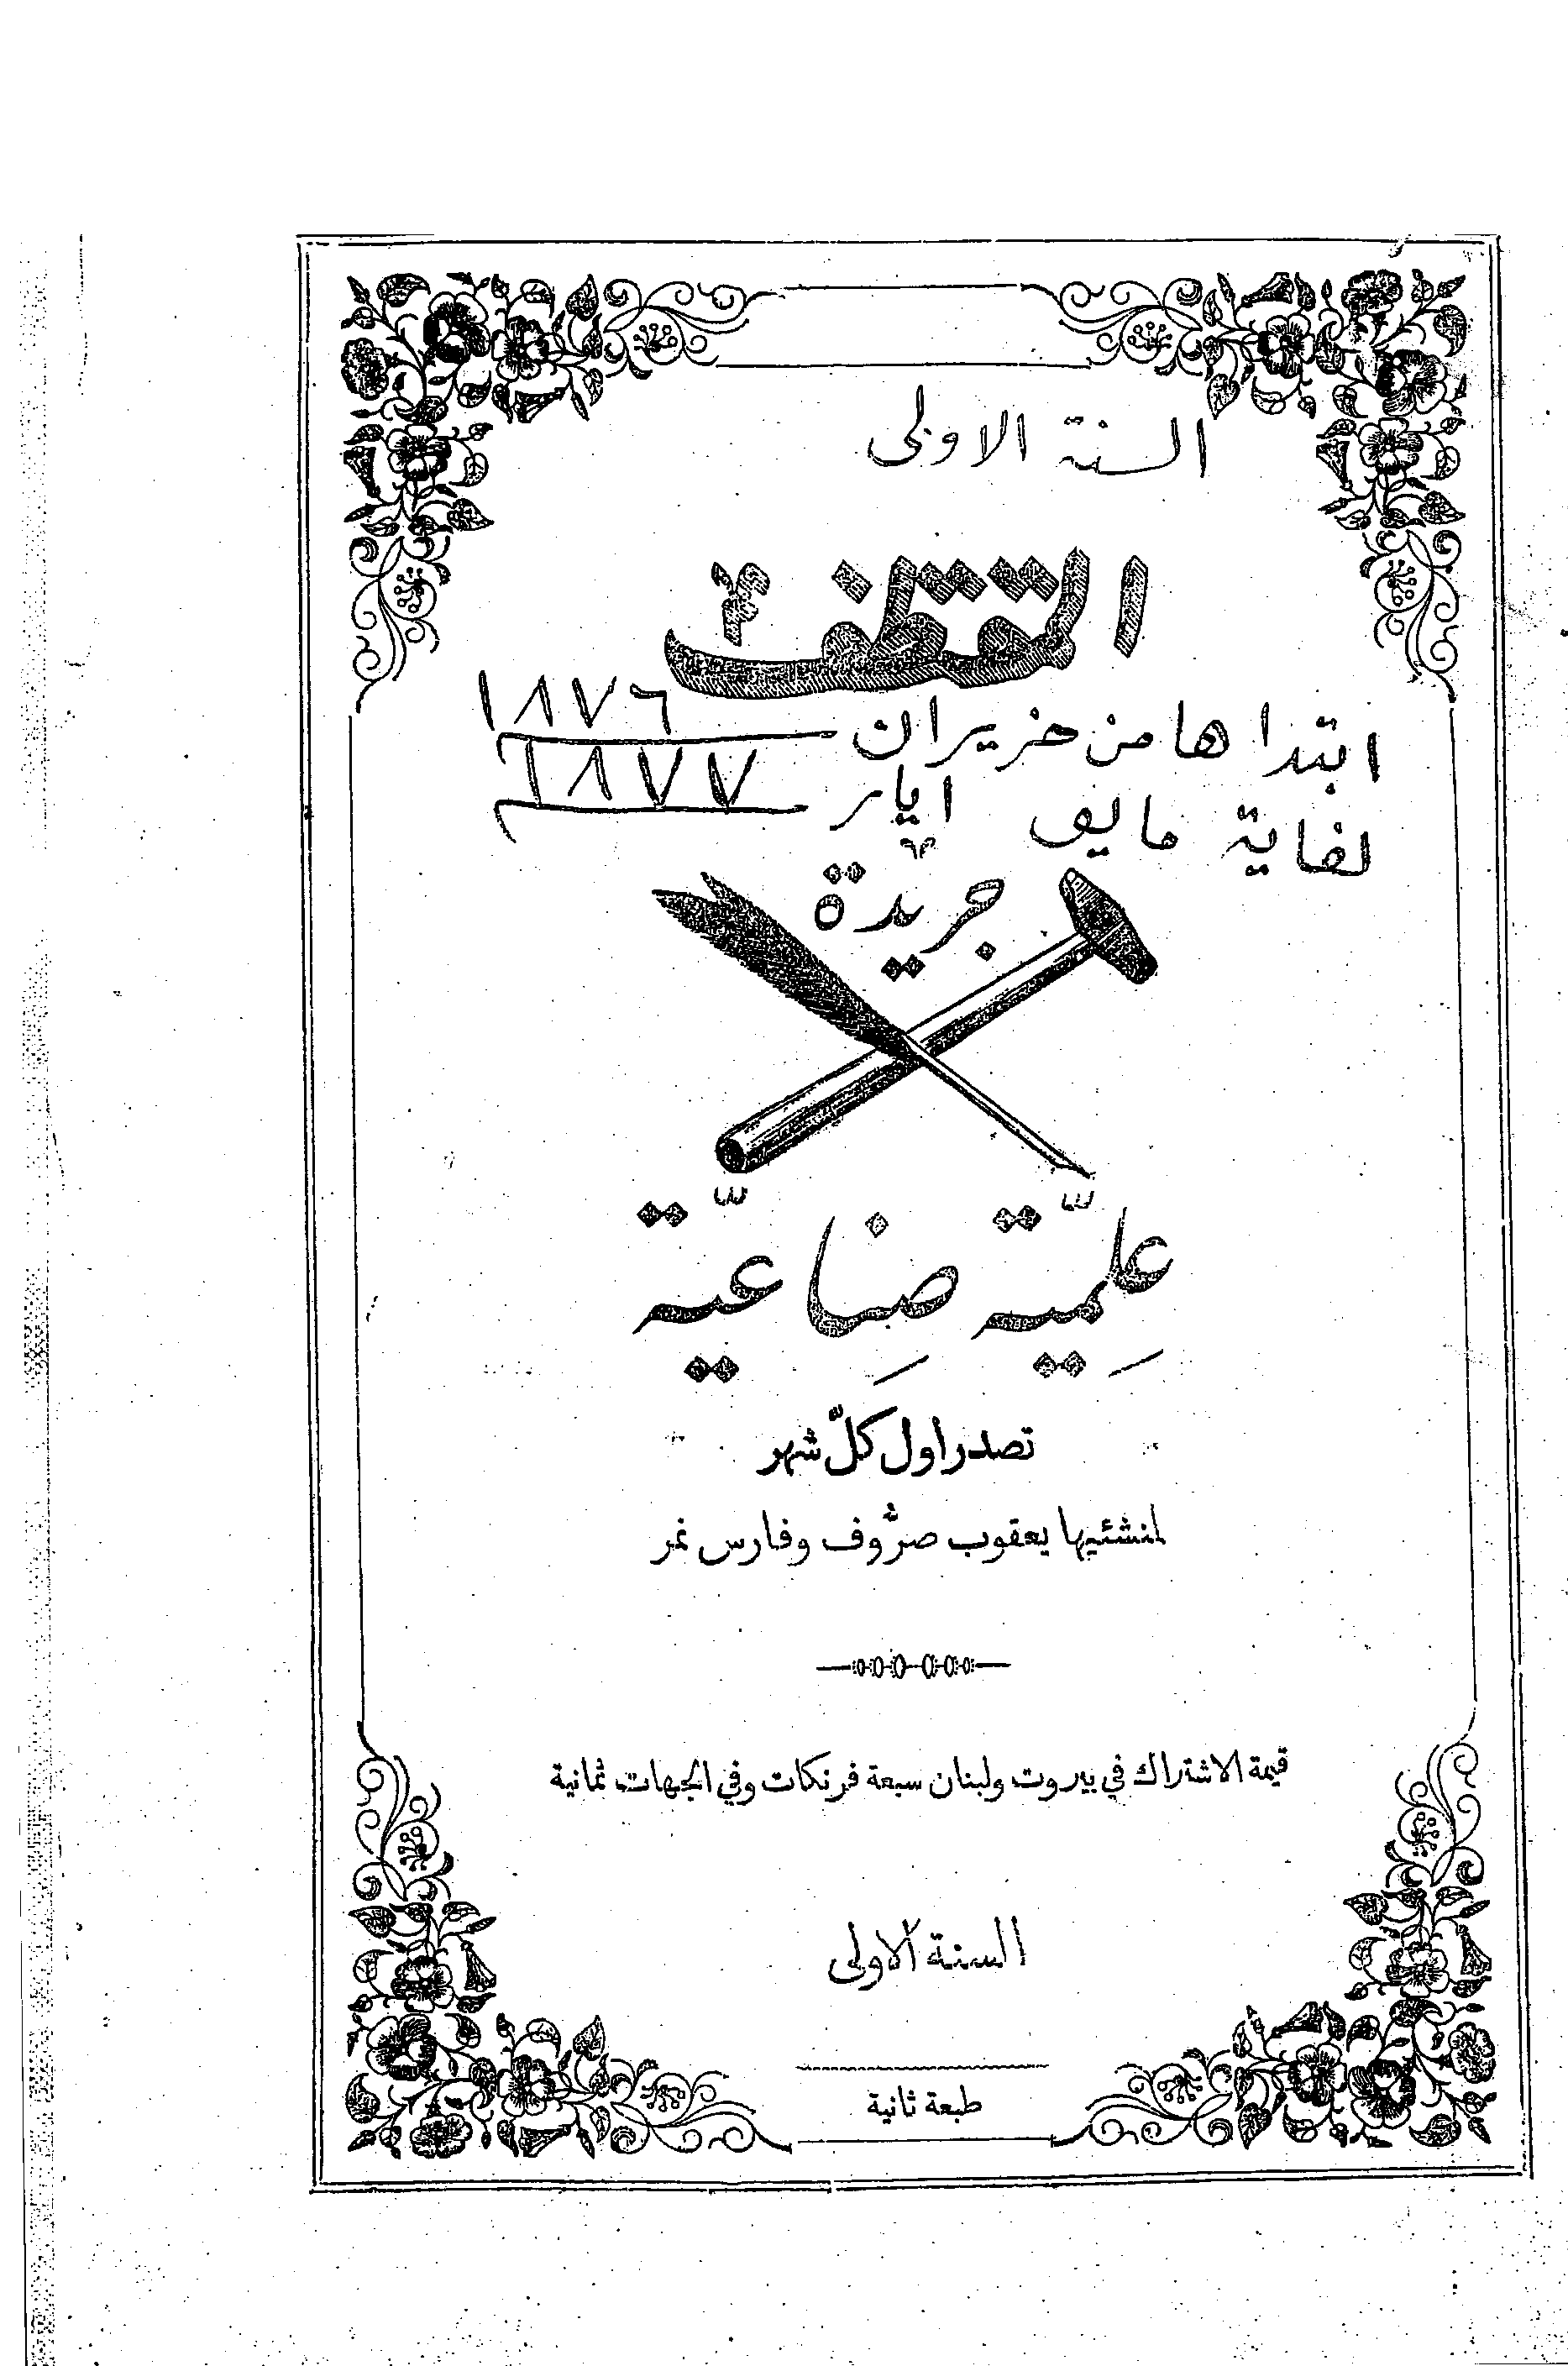 السنة الاولى
المقتطف
ابتدا ها من حزيران ١٨٧٦
لغاية مايو ايار ١٨٧٧
جريدة
علميّة صناعيّة
تصدر اول كلّ شهر
لمنشئيها يعقوب صرُّوف وفارس نمر
قيمة الاشتراك في بيروت ولبنان سبعة فرنكات وفي الجهات ثمانية
السنة الاولى
طبعة ثانية